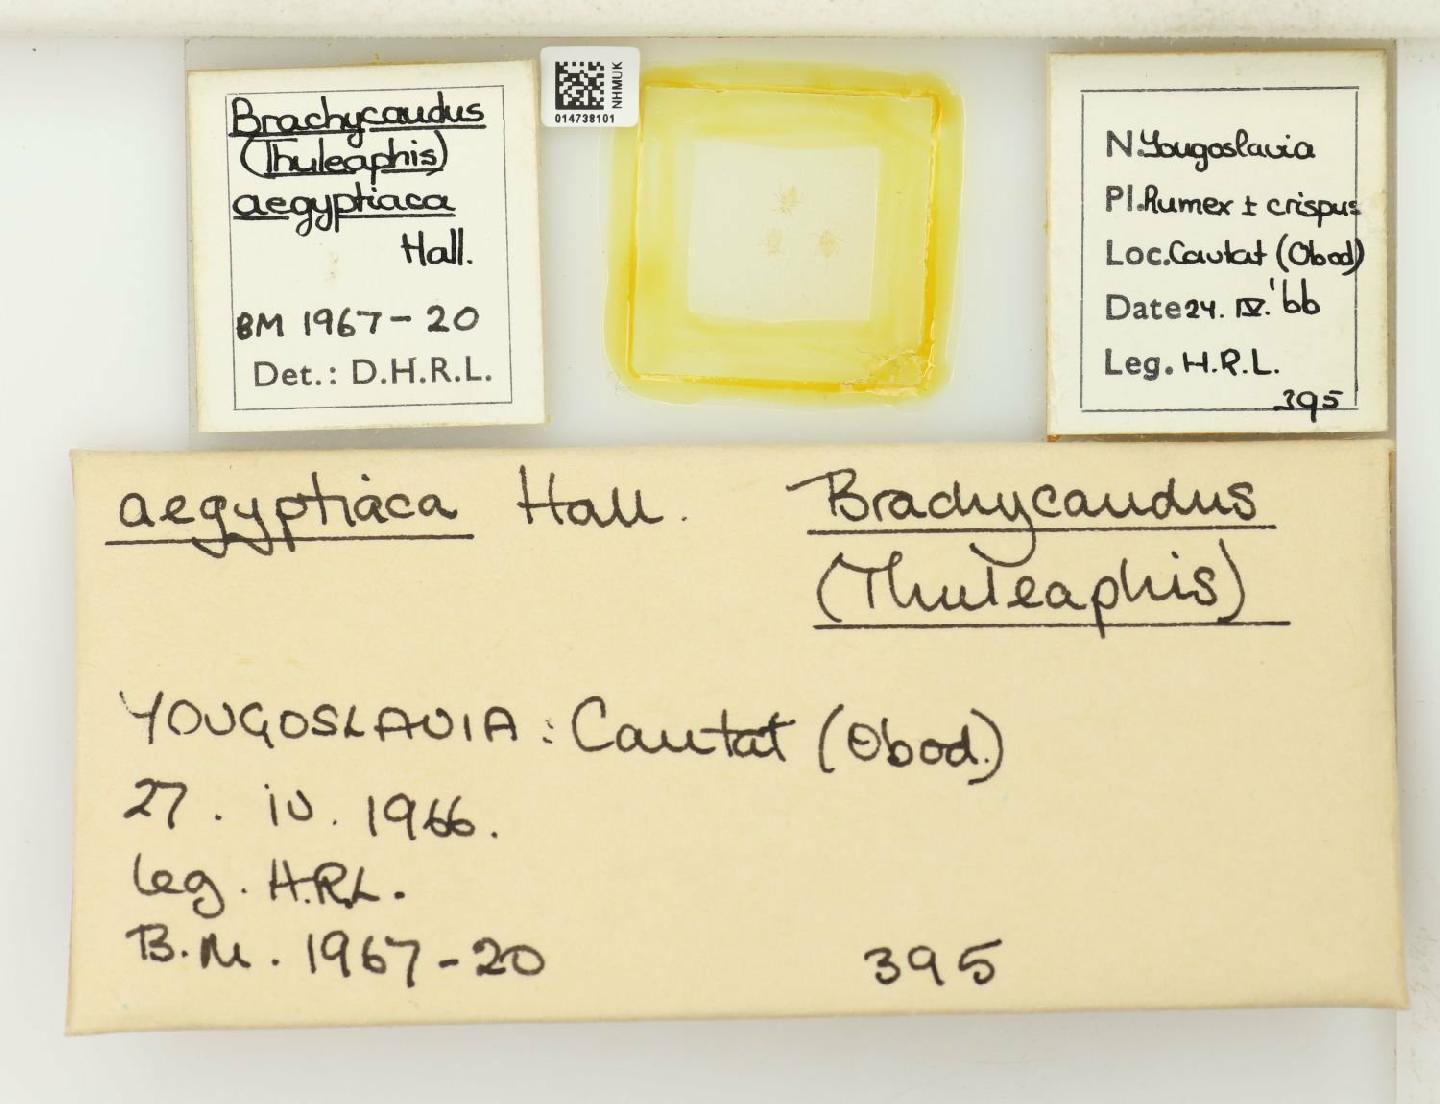 Brachycaudus
(Thuleaphis)
aegyptiaca
Hall.
BM 1967-20
Det.: D.H.R.L.
NHMUK
014738101
N.Yougoslavia
Pl.Rumex ± crispus
Loc.Cavtat (Obod)
Date 24. IV.'66
Leg. H.R.L.
395
aegyptiaca Hall. Brachycaudus
(Thuleaphis)
YOUGOSLAVIA: Cavtat (Obod.)
27. iv. 1966.
leg. H.R.L.
B.M. 1967-20 395